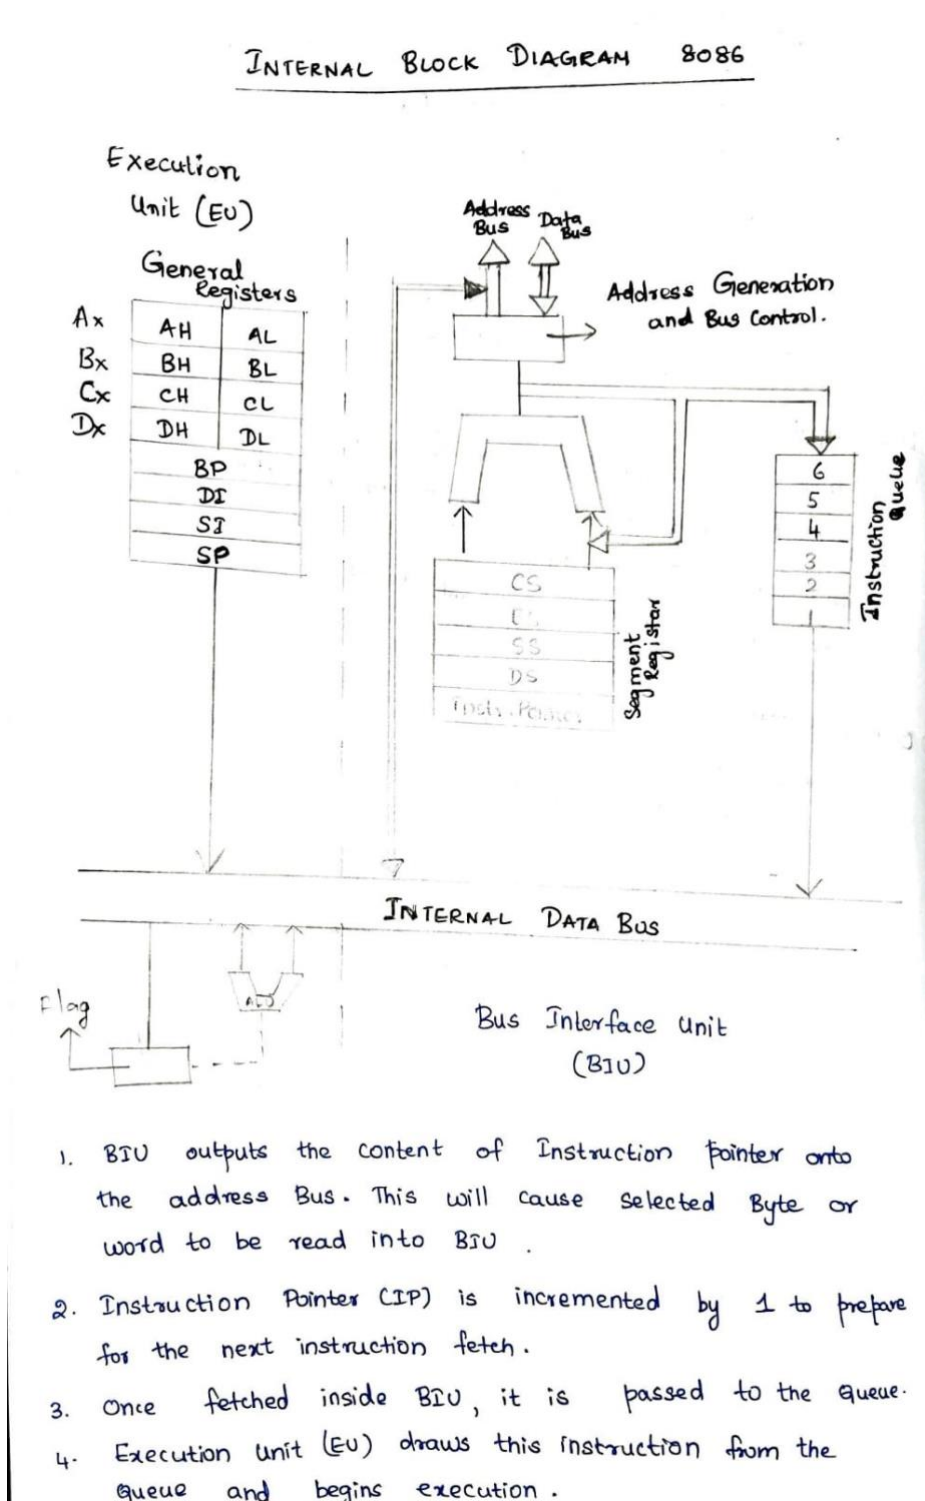 INTERNAL BLOCK DIAGRAM 8086
Execution
Unit (EU)
General
Registers
Ax AH AL
Bx BH BL
Cx CH CL
Dx DH DL
BP
DI
SI
SP
Address
Bus
Data
Bus
Address Generation
and Bus Control.
6
5
4
3
2
1
Instruction
Queue
CS
SS
DS
Instr. Pointer
Segment
Registar
INTERNAL DATA BUS
Flag
Bus Interface Unit
(BIU)
1. BIU outputs the content of Instruction pointer onto
the address Bus. This will cause selected Byte or
word to be read into BIU .
2. Instruction Pointer (IP) is incremented by 1 to prepare
for the next instruction fetch.
3. Once fetched inside BIU, it is passed to the Queue.
4. Execution Unit (EU) draws this instruction from the
Queue and begins execution .